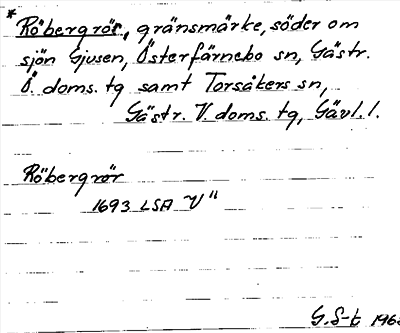 * Röbergrör, gränsmärke, söder om
sjön Gjusen, Österfärnebo sn, Gästr.
Ö. doms. tg samt Torsåkers sn,
Gästr. V. doms. tg, Gävl. l.
Röbergrör
1693 LSA V"
G. S-t 196